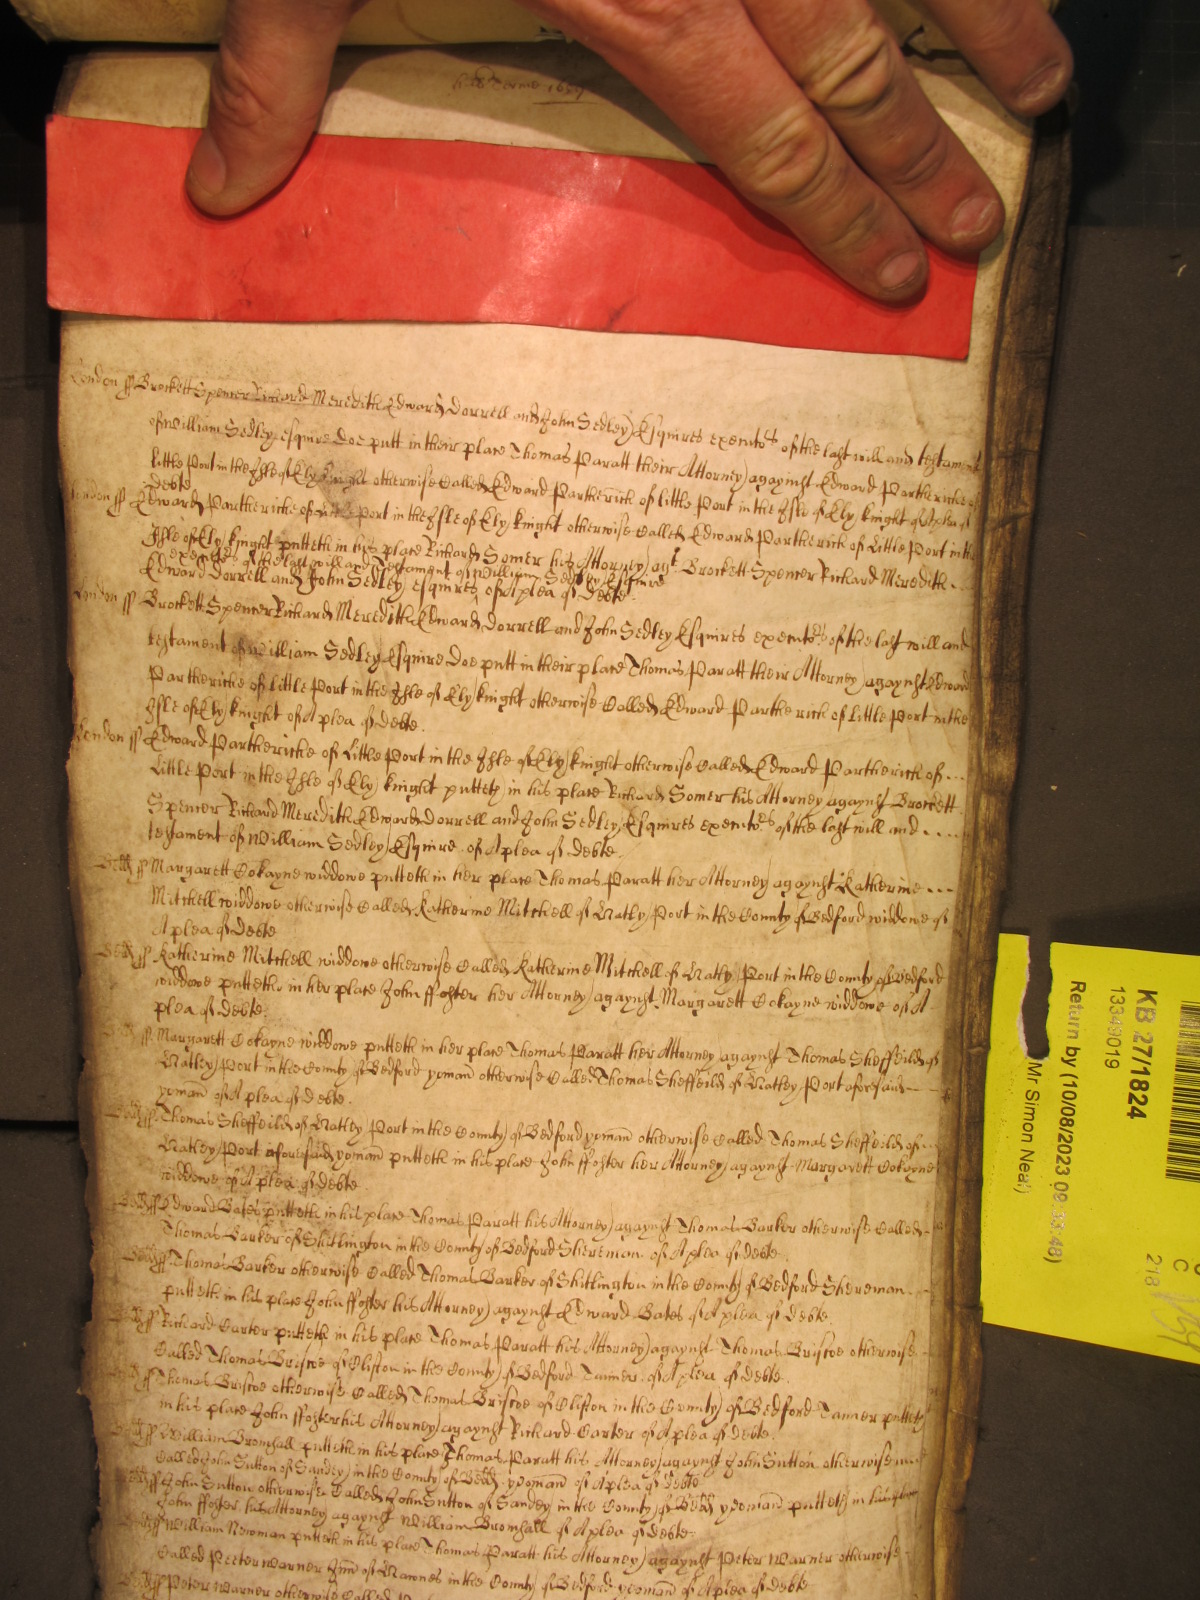 Terme 1659
London ss Brockett Spencer Richard Meredith Edward Dorrell and John Sedley Esquires executors of the last will and testament
of William Sedley esquire doe putt in their place Thomas Paratt their Attorney agaynst Edward Partheriche of
little Port in the Isle of Ely knight otherwise Called Edward Partherich of little Port in the Isle of Ely knight of A plea of
Debte
London ss Edward Partheriche of little Port in the Isle of Ely knight otherwise Called Edward Partherick of Little Port in the
Isle of Ely knight putteth in his place Richard Somer his Attorney agt Brockett Spencer Richard Meredith
executors of the last will and Testament of William Sedley Esquire
Edward Dorrell and John Sedley esquires of A plea of Debte
London ss Brockett Spencer Richard Meredith Edward Dorrell and John Sedley Esquires executors of the last will and
testament of William Sedley Esquire doe putt in their place Thomas Paratt their Attorney agaynst Edward
Partheriche of little Port in the Isle of Ely knight otherwise Called Edward Partherick of Little Port in the
Isle of Ely knight of A plea of Debte.
London ss Edward Partheriche of Little Port in the Isle of Ely knight otherwise Called Edward Partherick of ...
Little Port in the Isle of Ely knight putteth in his place Richard Somer his Attorney agaynst Brockett
Spencer Richard Meredith Edward Dorrell and John Sedley Esquires executors of the last will and ....
testament of William Sedley Esquire of A plea of Debte.
Bedd ss Margarett Cokayne widdowe putteth in her place Thomas Paratt her Attorney agaynst Katherine ...
Mitchell widdowe otherwise Called Katherine Mitchell of Natly Port in the County of Bedford widdowe of
A plea of Debte
Bedd ss Katherine Mitchell widdowe otherwise Called Katherine Mitchell of Natly Port in the County of Bedford
widdowe putteth in her place John ffoster her Attorney agaynst Margarett Cokayne widdowe of A
plea of Debte.
ss Margarett Cokayne widdowe putteth in her place Thomas Paratt her Attorney agaynst Thomas Sheffeild of
Natley Port in the County of Bedford yoman otherwise Called Thomas Sheffeild of Natley Port aforesaid
yoman of A plea of Debte.
Bedd ss Thomas Sheffeild of Natley Port in the County of Bedford yoman otherwise Called Thomas Sheffeild of ...
Natley Port aforesaid yoman putteth in his place John ffoster her Attorney agaynst Margarett Cokayne
widdowe of A plea of Debte
Bedd ss Edward Bates putteth in his place Thomas Paratt his Attorney agaynst Thomas Barker otherwise Called
Thomas Barker of Shitlington in the County of Bedford Shereman of A plea of Debte.
Bedd ss Thomas Barker otherwise Called Thomas Barker of Shitlington in the County of Bedford Shereman.
putteth in his place John ffoster his Attorney agaynst Edward Bates of A plea of Debte.
Bedd ss Richard Carter putteth in his place Thomas Paratt his Attorney agaynst Thomas Briscoe otherwise
Called Thomas Briscoe of Clifton in the County of Bedford Tanner of A plea of Debte.
ss Thomas Briscoe otherwise Called Thomas Briscoe of Clifton in the County of Bedford Tanner putteth
in his place John ffoster his Attorney agaynst Richard Carter of A plea of Debte.
ss William Bromhall putteth in his place Thomas Paratt his Attorney agaynst John Sutton otherwise
Called John Sutton of Sandey in the County of Bedd yoman of A plea of Debte
ss John Sutton otherwise Called John Sutton of Sandey in the County of Bedd yoman putteth in his place
John ffoster his Attorney agaynst William Bromhall of A plea of Debte.
Bedd ss William Newman putteth in his place Thomas Paratt his Attorney agaynst Peter Warner otherwise
Called Peeter Warner of Mawnes in the County of Bedford yoman of A plea of Debte
Bedd ss Peter Warner otherwise Called
KB 27/1824
13349019
Return by (10/08/2023 08:33:48)
(Mr Simon Neal)
C
218